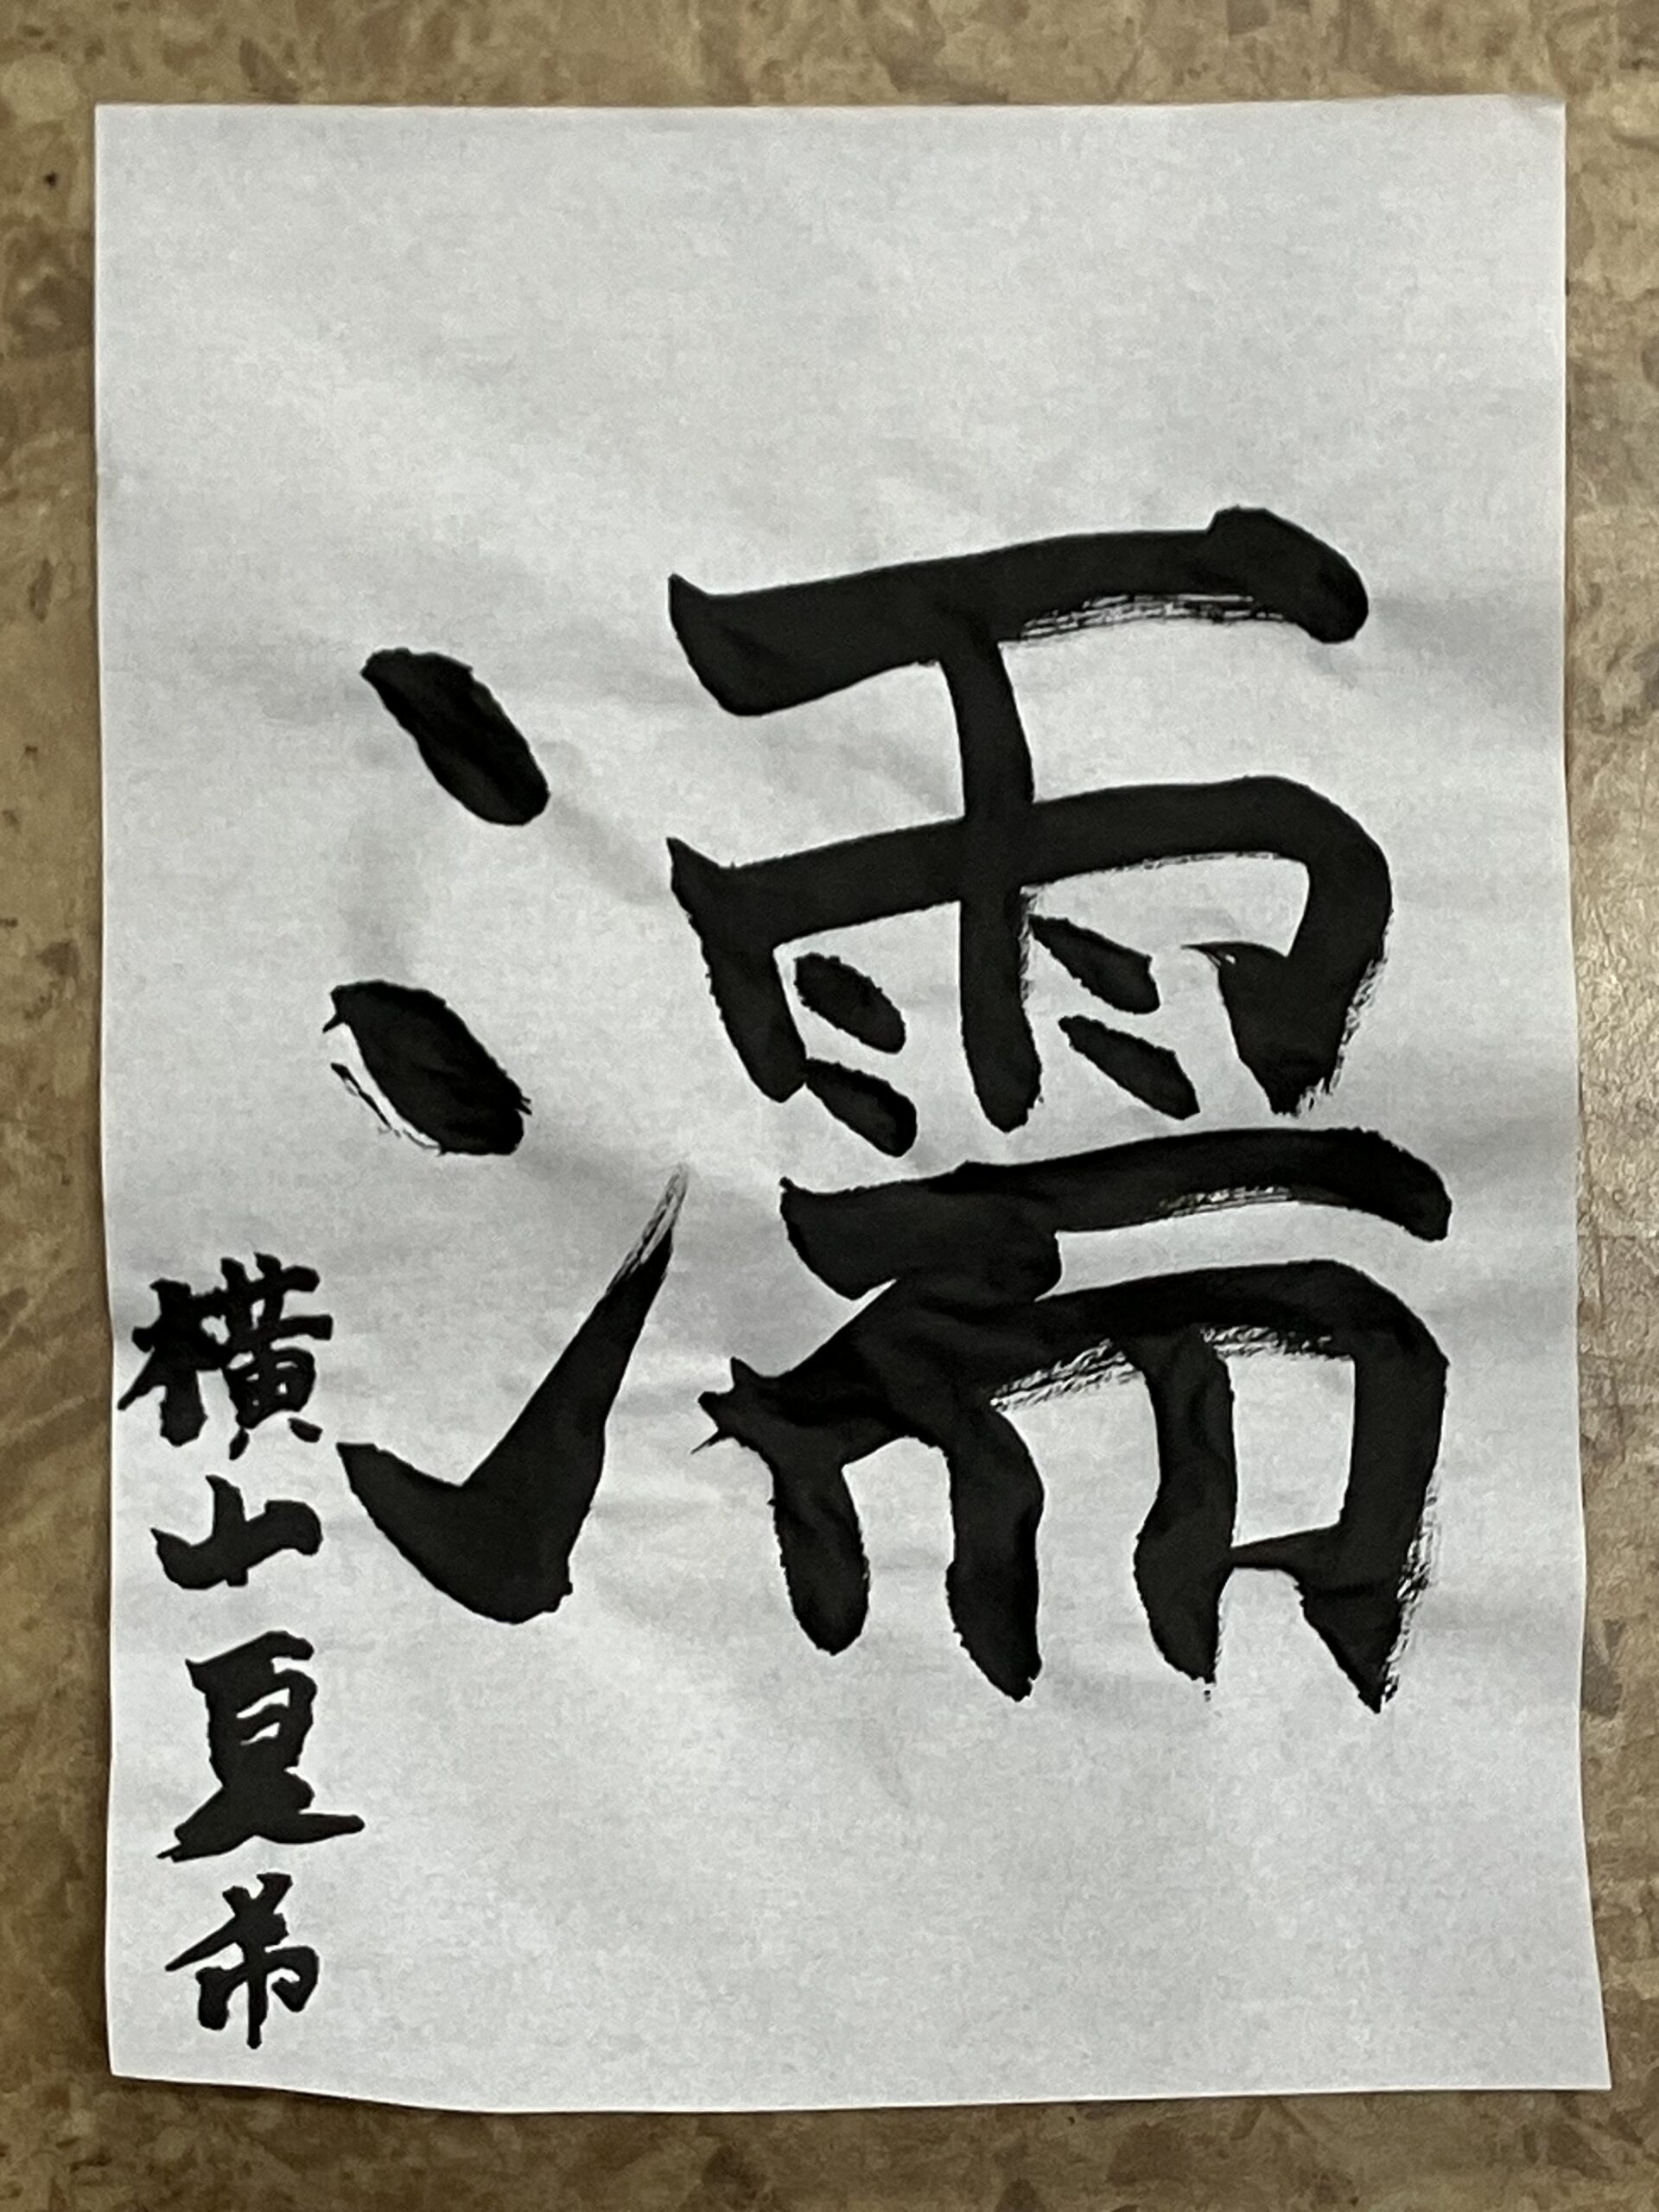 濡
横山夏希